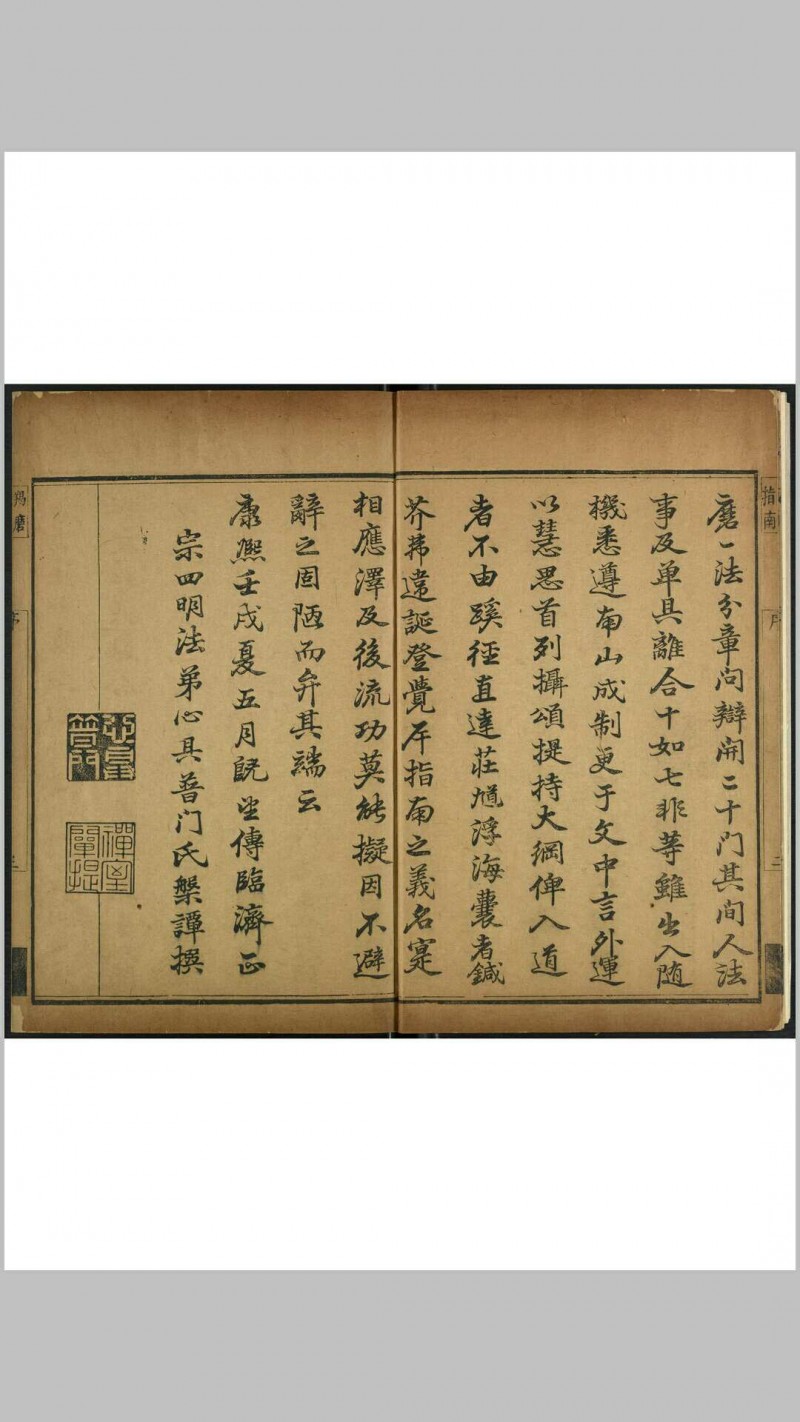 指南
磨一法分章问辯開二十門其间人法
事及单具離合十如七非等雖出入随
機悉遵南山成制更于文中言外運
以慧思首列攝頌提持大綱俾入道
者不由蹊徑直達莊馗浮海囊者鍼
芥弗違誕登覺岸指南之義名寔
相應澤及後流功莫能擬因不避
辭之固陋而弁其端云
康熈壬戌夏五月既望傳臨濟正
宗四明法弟心具普门氏槃譚撰
普門
羯磨